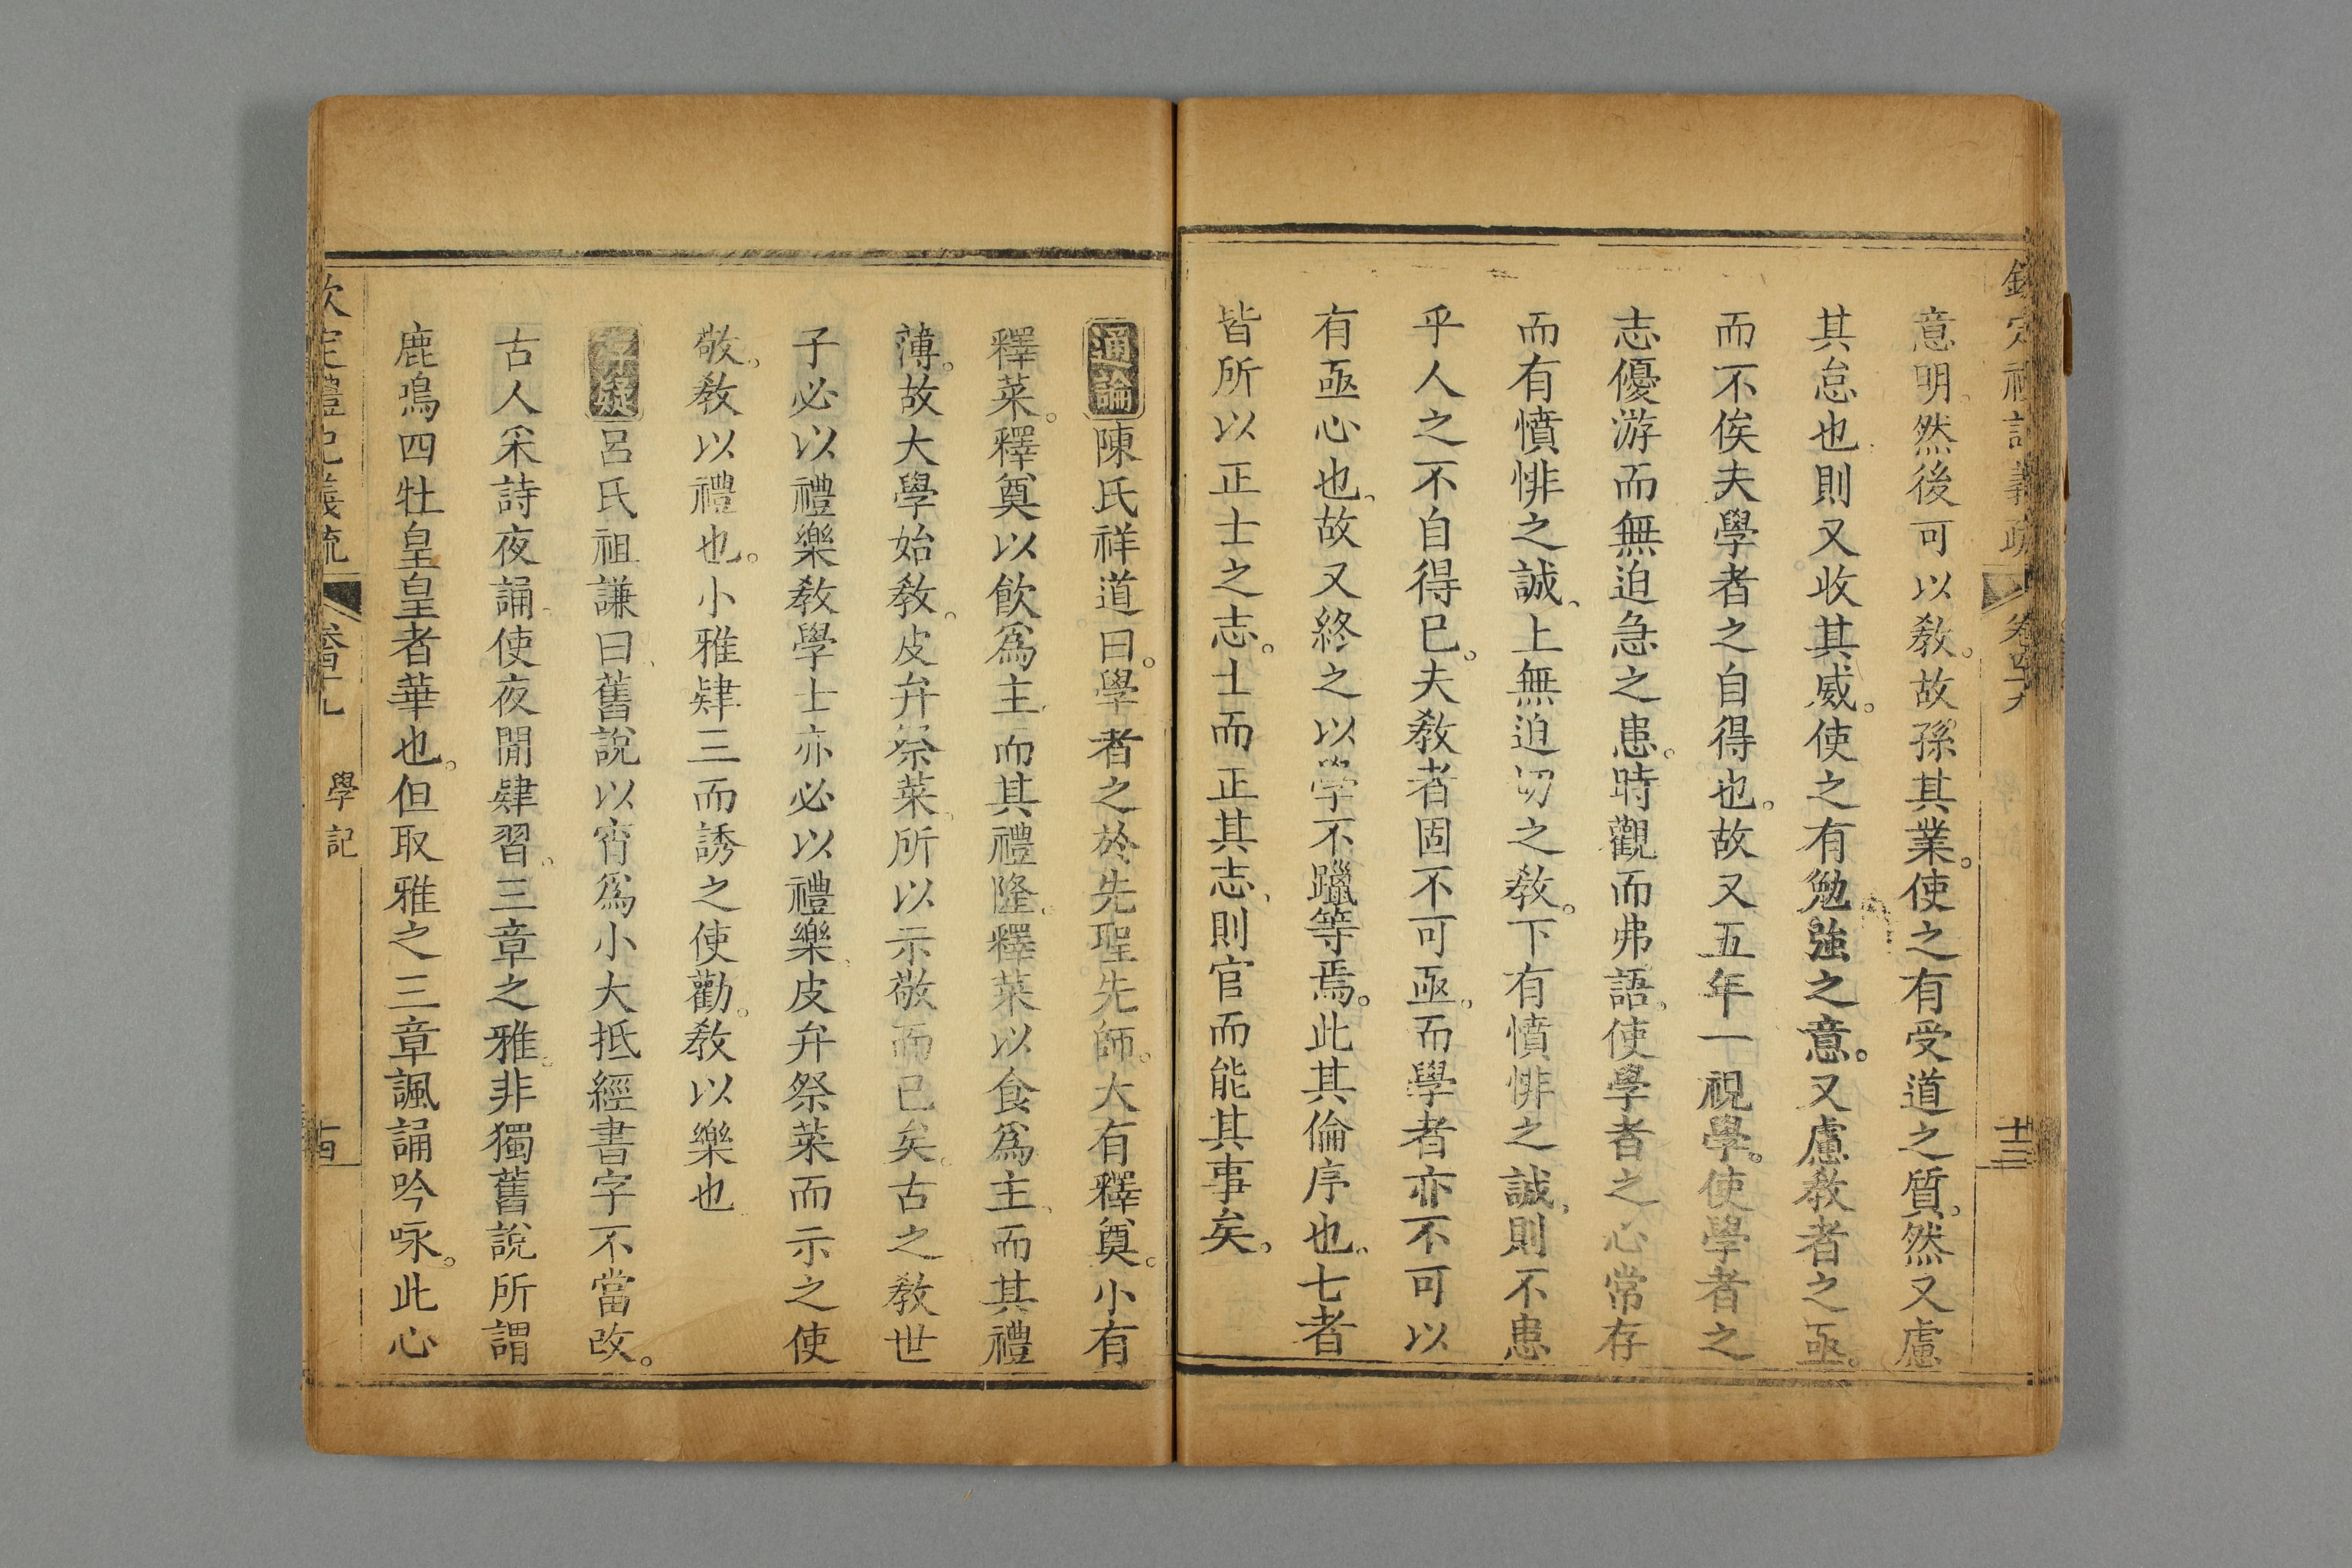 欽定禮記義疏 卷四十九 十三
意明然後可以教。故孫其業。使之有受道之質。然又慮
其怠也則又收其威。使之有勉強之意。又慮教者之亟。
而不俟夫學者之自得也。故又五年一視學。使學者之
志優游而無迫急之患。時觀而弗語、使學者之心常存
而有憤悱之誠、上無迫切之教。下有憤悱之誠、則不患
乎人之不自得已。夫教者固不可亟。而學者亦不可以
有亟心也、故又終之以學不躐等焉。此其倫序也、七者
皆所以正士之志。士而正其志、則官而能其事矣。
通論陳氏祥道曰。學者之於先聖先師。大有釋奠。小有
釋菜。釋奠以飲爲主、而其禮隆。釋菜以食爲主、而其禮
薄。故大學始教。皮弁祭菜、所以示敬而已矣。古之教世
子必以禮樂教學士亦必以禮樂、皮弁祭菜而示之使
敬。教以禮也。小雅肄三而誘之使勸。教以樂也
存疑呂氏祖謙曰、舊說以宵爲小大抵經書字不當改。
古人采詩夜誦、使夜閒肄習、三章之雅、非獨舊說所謂
鹿鳴四牡皇皇者華也。但取雅之三章諷誦吟咏。此心
欽定禮記義疏 卷四十九 學記 十四